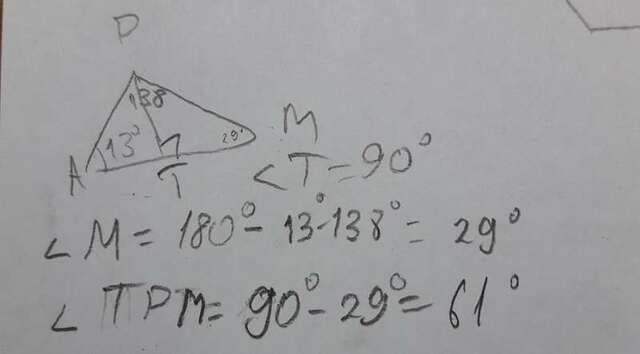 P
138
13°
29°
M
A
T
∠T=90°
∠M=180°-13°-138°=29°
∠TPM=90°-29°=61°